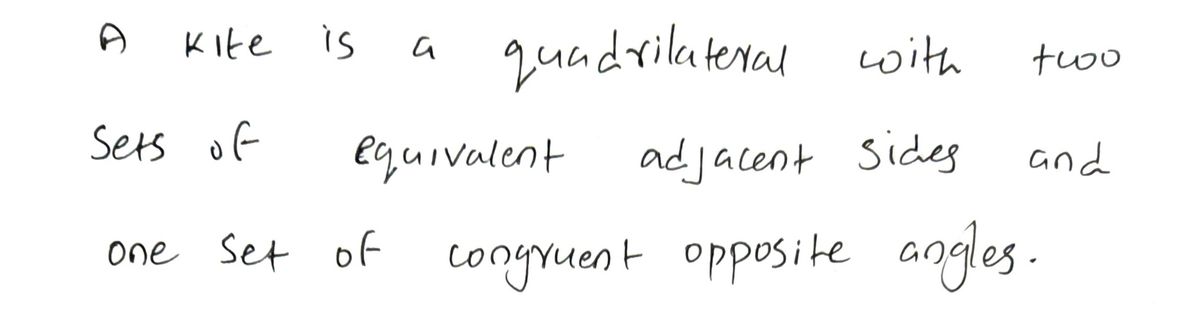 A kite is a quadrilateral with two
sets of equivalent adjacent sides and
one set of congruent opposite angles.